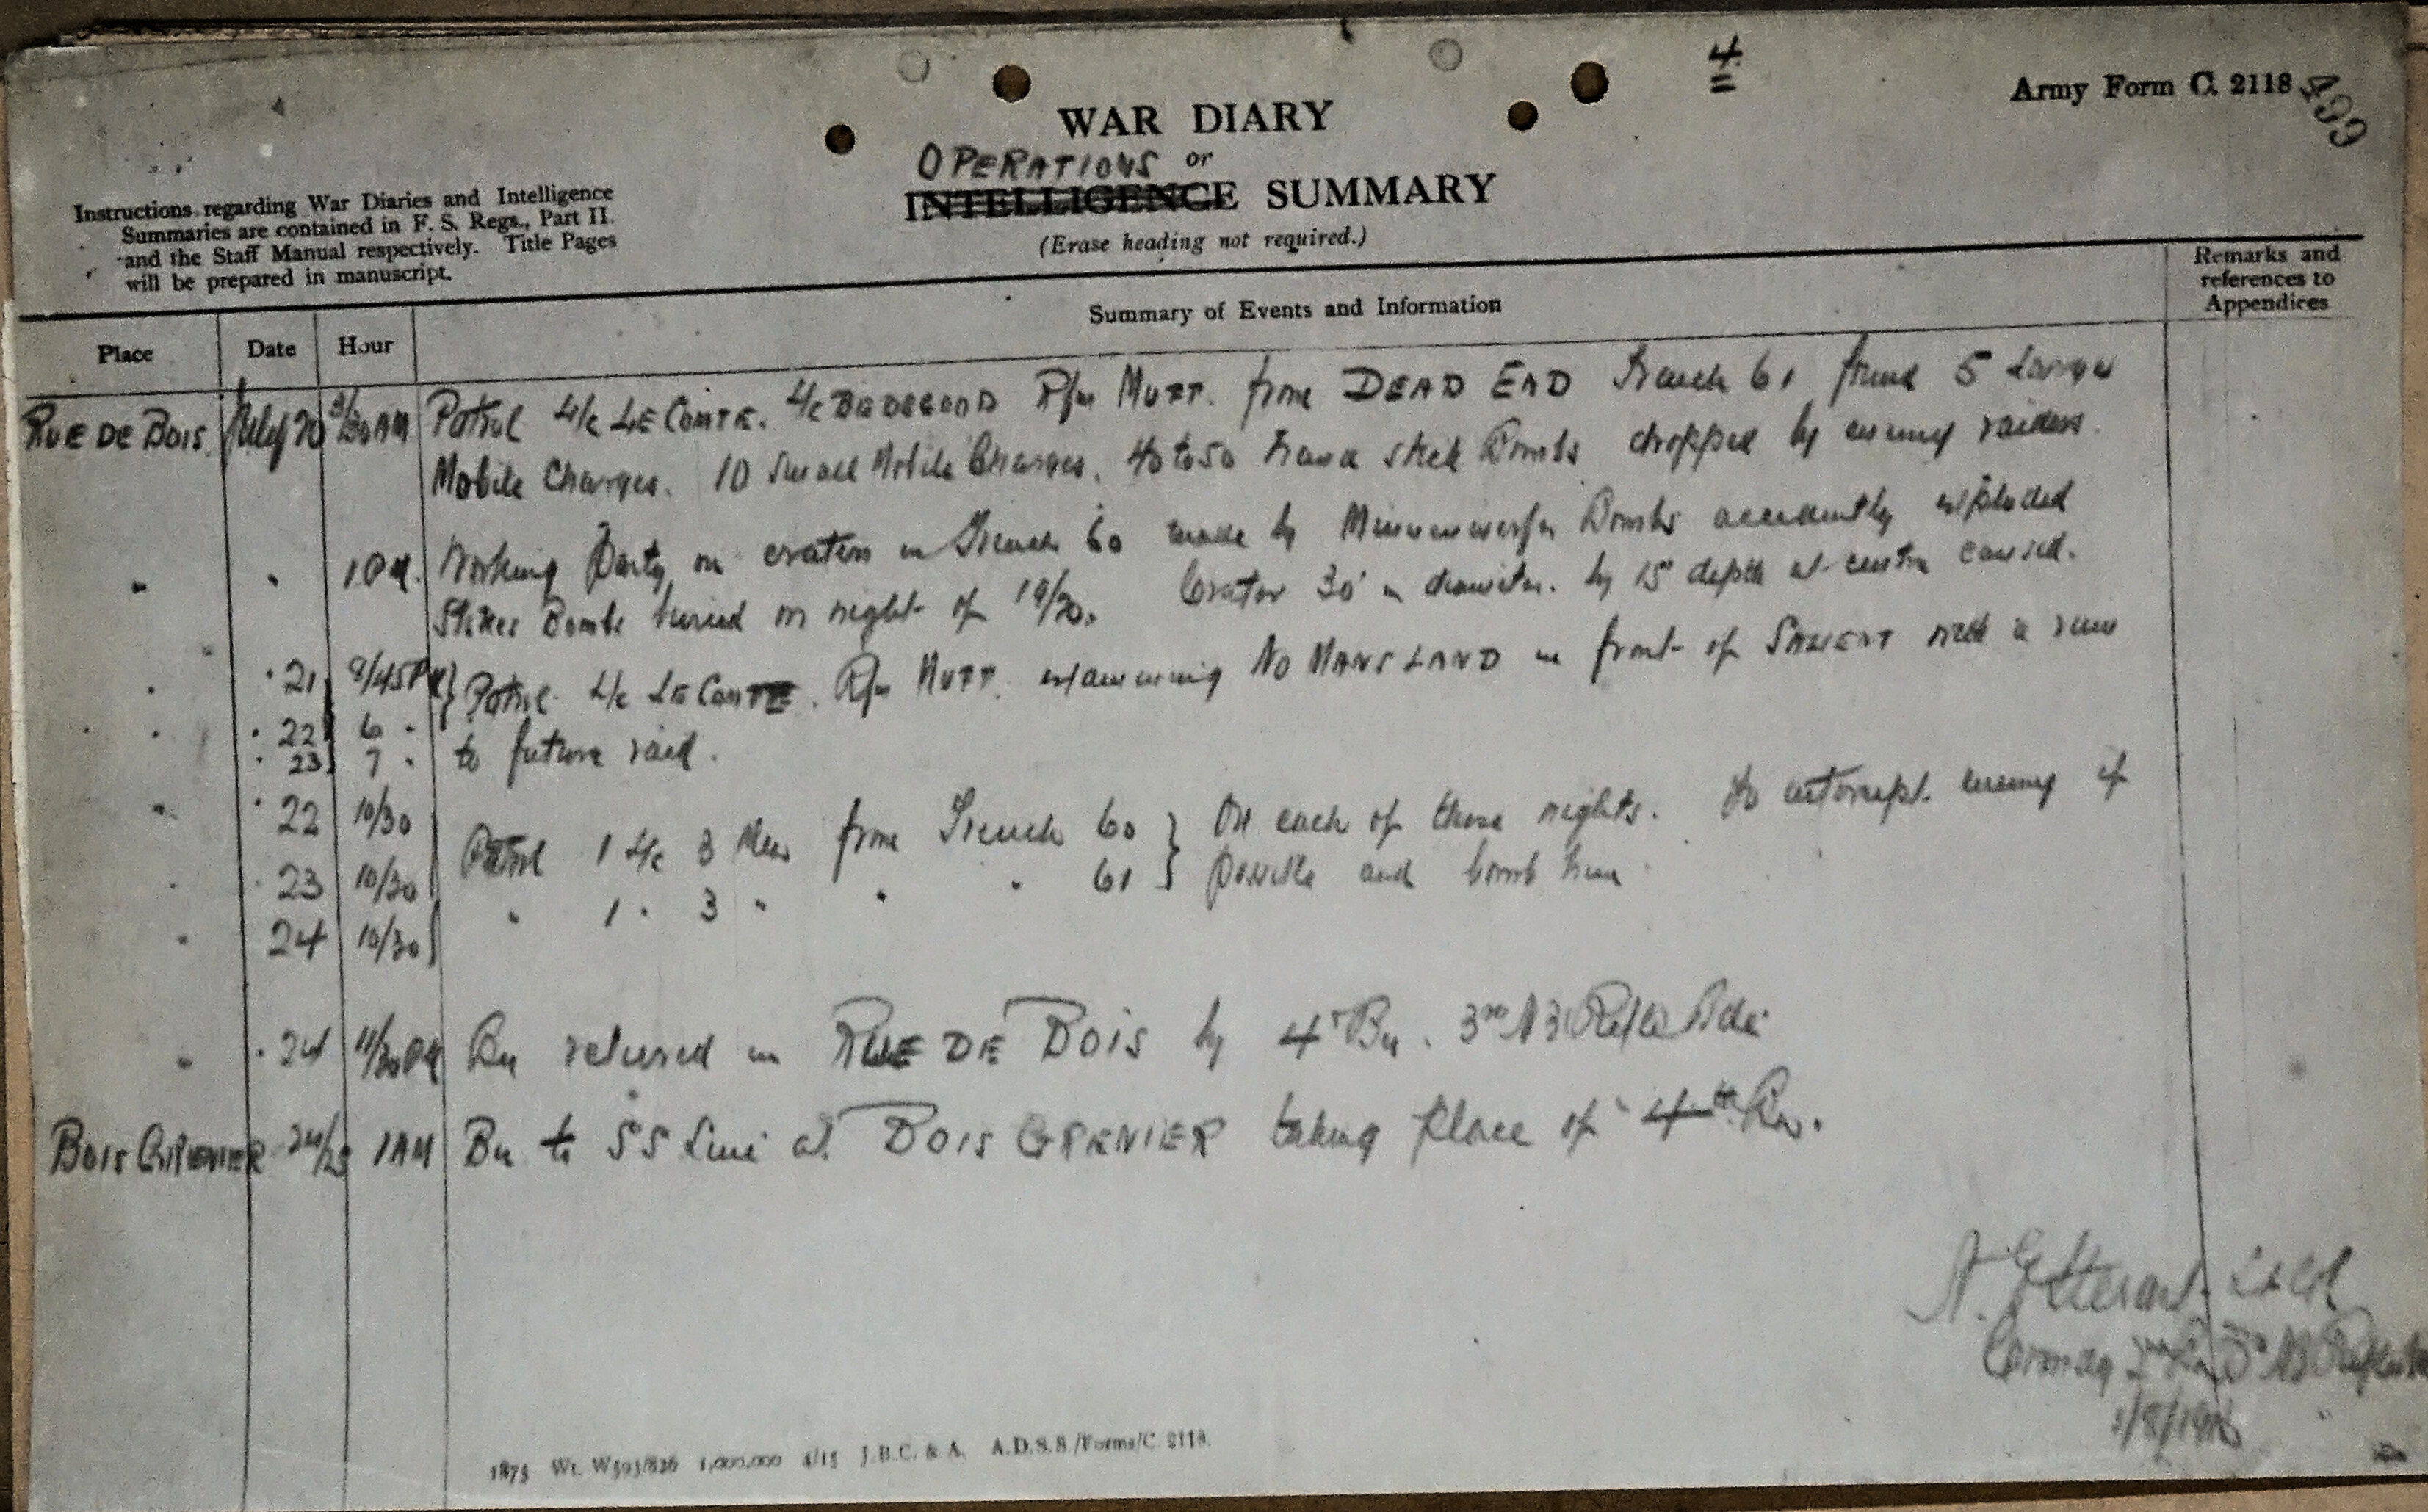 4
Army Form C. 2118
499
WAR DIARY
OPERATIONS or
INTELLIGENCE SUMMARY
(Erase heading not required.)
Instructions regarding War Diaries and Intelligence
Summaries are contained in F. S. Regs., Part II.
and the Staff Manual respectively. Title Pages
will be prepared in manuscript.
Place Date Hour Summary of Events and Information Remarks and references to Appendices
RUE DE BOIS July 20 3/30 AM Patrol L/c LE COMTE. L/c Rfn MUTT. from DEAD END Trench 61 found 5 Large
Mobile Charges. 10 Small Mobile Charges. 40 to 50 hand stick Bombs dropped by enemy raiders.
" " 1 PM. Working Party on craters in Trench 60 made by Minnenwerfer Bombs accidently exploded
Stokes Bombs buried on night of 19/20. Crater 30' in diameter. by 15' depth at centre caused.
" " 21 8/45 PM } Patrol L/c LE COMTE. Rfn MUTT. examining NO MANS LAND in front of SALIENT with a view
" " 22 6 "
" 23 7 " to future raid.
" " 22 10/30
Patrol 1 L/c 3 Men from Trench 60 } On each of these nights. To intercept enemy if
" " 23 10/30 " 1 " 3 " " " 61 } possible and bomb him
" 24 10/30
" " 24 11/30 PM Bn relieved in RUE DE BOIS by 4th Bn. 3rd NZ Rifle Bde
BOIS GRENIER 24/25 1 AM Bn to SS Line at BOIS GRENIER taking place of 4th Bn.
Lt Col
Comdg 2nd Bn 3rd NZ Rifle
1/8/1916
1875 Wt. W593/826 1,000,000 4/15 J.B.C. & A. A.D.S.S./Forms/C. 2118.